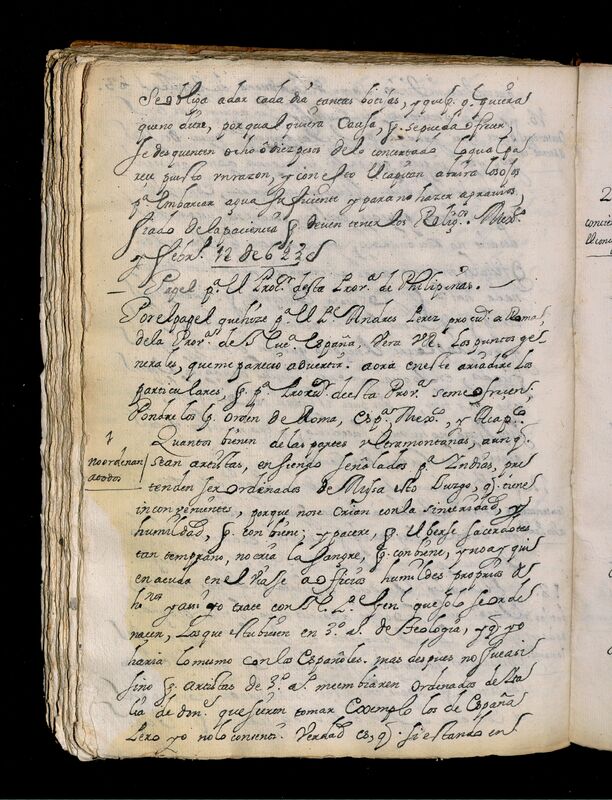 se obliga a dar cada dia tantas botijas, y que pª qe quiera
que no dure, por qualquiera Causa, q. se pueda ofrecer
se desquenten ocho ô diez pesos de lo concertado. lo qual pa
reçe puesto en razon, y con esto el capitan abrira los ojos
pª embarcar agua suficiente y para no hazer agravios,
fiado de la paciencia q. deven tener los Religos. Mexco.
y febrº. 12 de 623
Papel pª el Procor. desta Provª. de Philipinas.
Por el papel que hize pª el Pe. Andres Perez procur. a Roma,
de la Provª. de Nueª. España, Vera VR. los puntos ge
nerales, que me parecio advertir. aora en este añadire los
particulares, q. pª Procur. de esta Provª. se me ofrecen,
Pondre los q. Orden de Roma, Espª. Mexco, y Acapco.
1
no ordenar
a todos
Quantos bienen de las partes ultramontanas, aunq.
sean artistas, en siendo señalados pª Indias, pre
tenden ser ordenados de Missa esto Luego, q. tiene
inconvenientes, porque no se crian con la sinceridad, y
humildad, q. conbiene; y parece, q. el berse sacerdotes
tan temprano, no cria la sangre, q. conbiene, y no ay qui
en acuda en el viaje a oficios humildes proprios de
hnos y assi yo trace con N. Pe. Genl. que solo se orde
nacen, los que estubiesen en 3º. aº. de Teologia, y q. yo
haria lo mismo con los Españoles. mas despues no fue asi
sino q. artistas de 3º. aº. me embiaren ordenados de Ita
lia de donde. quisieron tomar Exemplo los de España
Pero yo no lo consenti. Verdad es, q. si estando en